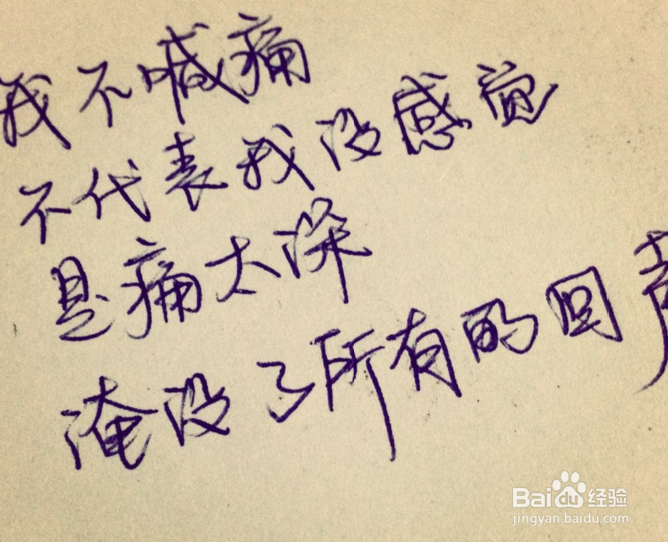 我不喊痛
不代表我没感觉
是痛太深
淹没了所有的回声
Baidu经验
jingyan.baidu.com